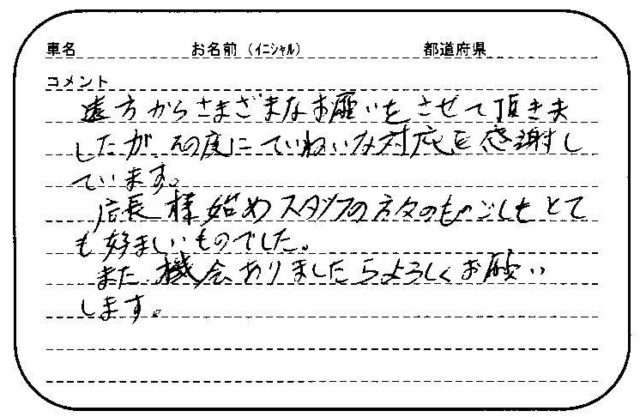 車名 お名前（イニシャル） 都道府県
コメント
遠方からさまざまなお願いをさせて頂きま
したが その度にていねいな対応を感謝し
ています。
店長様始めスタッフの方々のものごしもとて
も好ましいものでした。
また機会ありましたらよろしくお願い
します。